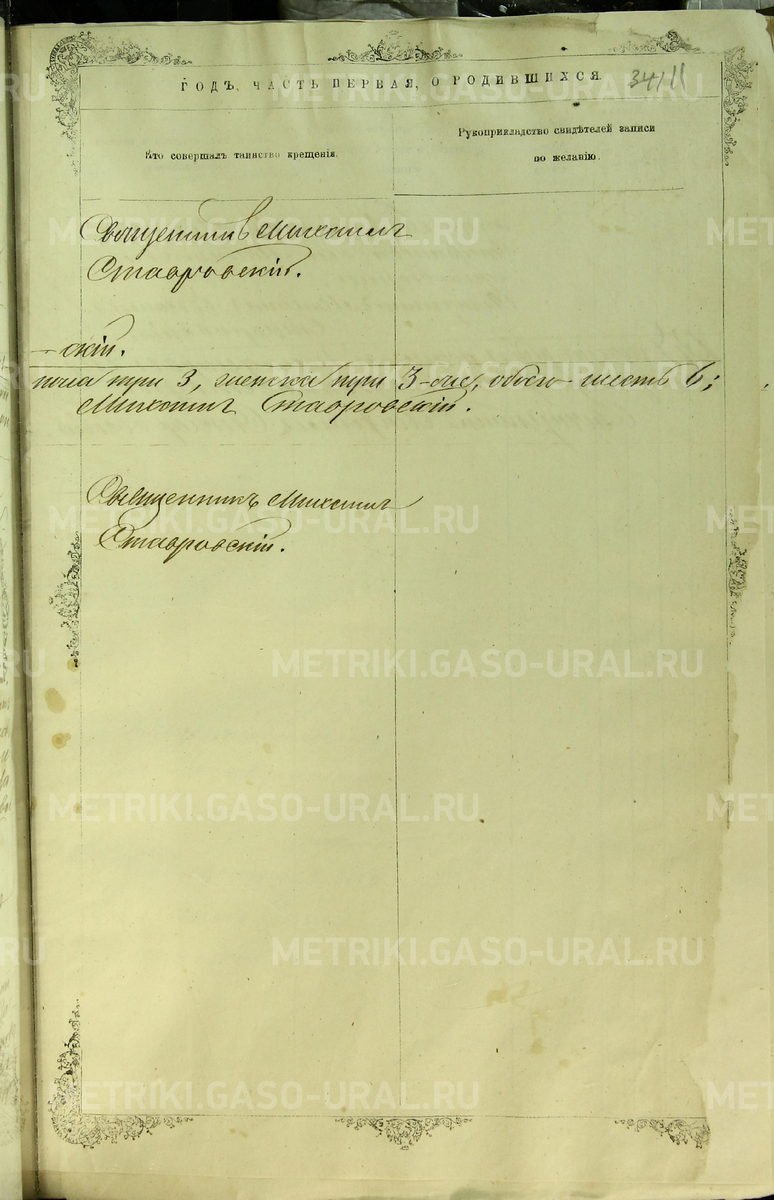 ГОДЪ, ЧАСТЬ ПЕРВАЯ, О РОДИВШИХСЯ.
34
Кто совершалъ таинство крещенія.
Рукоприкладство свидѣтелей записи
по желанію.
Священникъ Михаилъ
Ставровскій.
-скій.
пола три 3, женска три 3-ое, обоего шесть 6;
Михаилъ Ставровскій.
Священникъ Михаилъ
Ставровскій.
METRIKI.GASO-URAL.RU